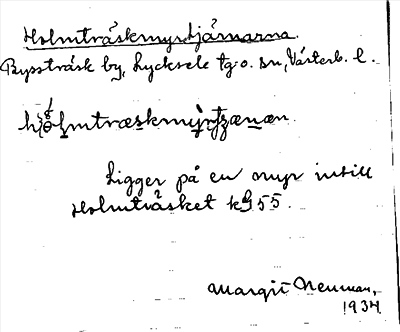 Holmträskmyrtjärnarna.
Bysträsk by, Lycksele tg. o. sn, Västerb. l.
Ligger på en myr intill
Holmträsket kg 55.
Margit Neuman,
1934